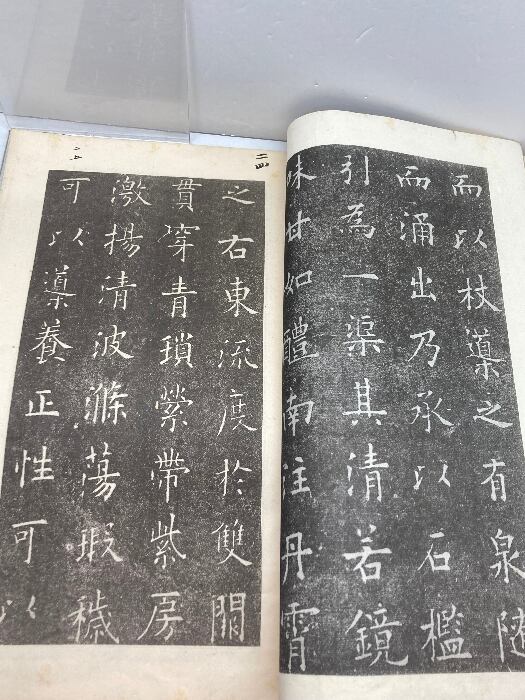 而以杖導之有泉隨
而涌出乃承以石檻
引為一渠其清若鏡
味甘如醴南注丹霄
二四
之右東流度於雙闕
貫穿青瑣縈帶紫房
激揚清波滌蕩瑕穢
可以導養正性可以